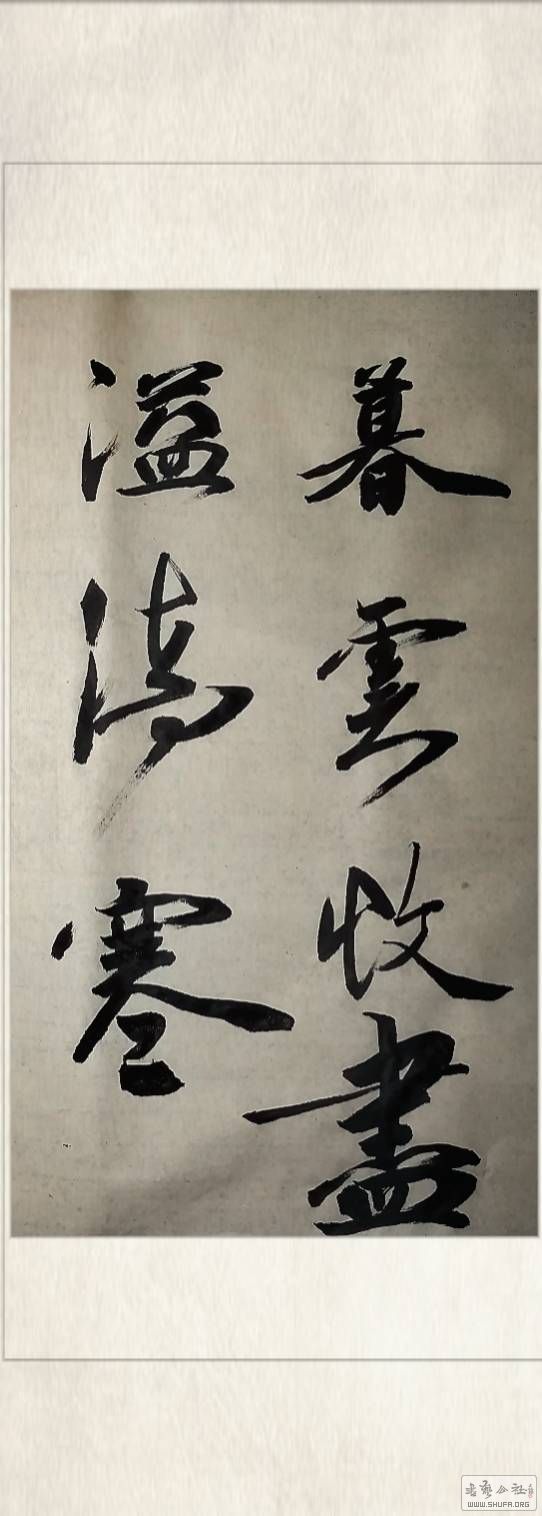 暮雲收盡
溢清寒
WWW.SHUFA.ORG